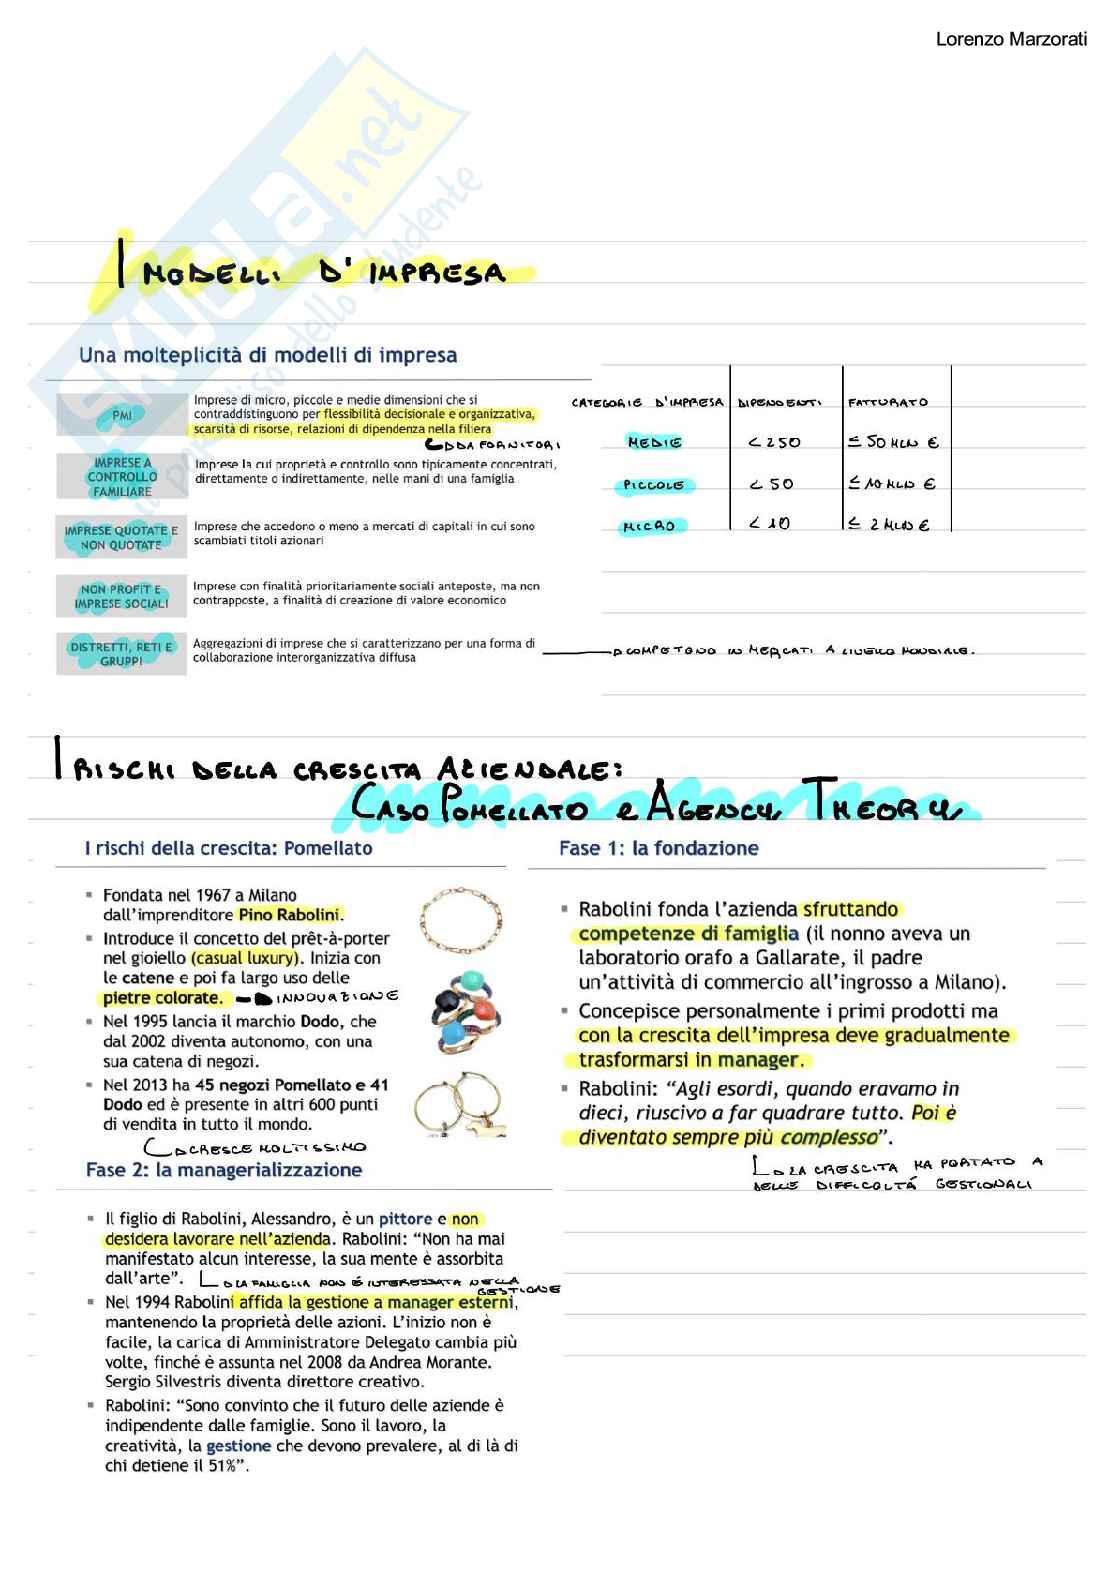 Lorenzo Marzorati
SKUOLA.net
il paradiso dello studente
I MODELLI D'IMPRESA
Una molteplicità di modelli di impresa
PMI
Imprese di micro, piccole e medie dimensioni che si
contraddistinguono per flessibilità decisionale e organizzativa,
scarsità di risorse, relazioni di dipendenza nella filiera
DA FORNITORI
IMPRESE A
CONTROLLO
FAMILIARE
Imprese la cui proprietà e controllo sono tipicamente concentrati,
direttamente o indirettamente, nelle mani di una famiglia
IMPRESE QUOTATE E
NON QUOTATE
Imprese che accedono o meno a mercati di capitali in cui sono
scambiati titoli azionari
NON PROFIT E
IMPRESE SOCIALI
Imprese con finalità prioritariamente sociali anteposte, ma non
contrapposte, a finalità di creazione di valore economico
DISTRETTI, RETI E
GRUPPI
Aggregazioni di imprese che si caratterizzano per una forma di
collaborazione interorganizzativa diffusa
COMPETONO IN MERCATI A LIVELLO MONDIALE.
CATEGORIE D'IMPRESA DIPENDENTI FATTURATO
MEDIE < 250 ≤ 50 MLN €
PICCOLE < 50 ≤ 10 MLN €
MICRO < 10 ≤ 2 MLN €
I RISCHI DELLA CRESCITA AZIENDALE:
CASO POMELLATO e AGENCY THEORY
I rischi della crescita: Pomellato
Fondata nel 1967 a Milano
dall'imprenditore Pino Rabolini.
Introduce il concetto del prêt-à-porter
nel gioiello (casual luxury). Inizia con
le catene e poi fa largo uso delle
pietre colorate. → INNOVAZIONE
Nel 1995 lancia il marchio Dodo, che
dal 2002 diventa autonomo, con una
sua catena di negozi.
Nel 2013 ha 45 negozi Pomellato e 41
Dodo ed è presente in altri 600 punti
di vendita in tutto il mondo.
CRESCE MOLTISSIMO
Fase 1: la fondazione
Rabolini fonda l'azienda sfruttando
competenze di famiglia (il nonno aveva un
laboratorio orafo a Gallarate, il padre
un'attività di commercio all'ingrosso a Milano).
Concepisce personalmente i primi prodotti ma
con la crescita dell'impresa deve gradualmente
trasformarsi in manager.
Rabolini: “Agli esordi, quando eravamo in
dieci, riuscivo a far quadrare tutto. Poi è
diventato sempre più complesso”.
LA CRESCITA HA PORTATO A
DELLE DIFFICOLTÁ GESTIONALI
Fase 2: la managerializzazione
Il figlio di Rabolini, Alessandro, è un pittore e non
desidera lavorare nell'azienda. Rabolini: “Non ha mai
manifestato alcun interesse, la sua mente è assorbita
dall'arte”.
LA FAMIGLIA NON É INTERESSATA NELLA
GESTIONE
Nel 1994 Rabolini affida la gestione a manager esterni,
mantenendo la proprietà delle azioni. L'inizio non è
facile, la carica di Amministratore Delegato cambia più
volte, finché è assunta nel 2008 da Andrea Morante.
Sergio Silvestris diventa direttore creativo.
Rabolini: “Sono convinto che il futuro delle aziende è
indipendente dalle famiglie. Sono il lavoro, la
creatività, la gestione che devono prevalere, al di là di
chi detiene il 51%”.